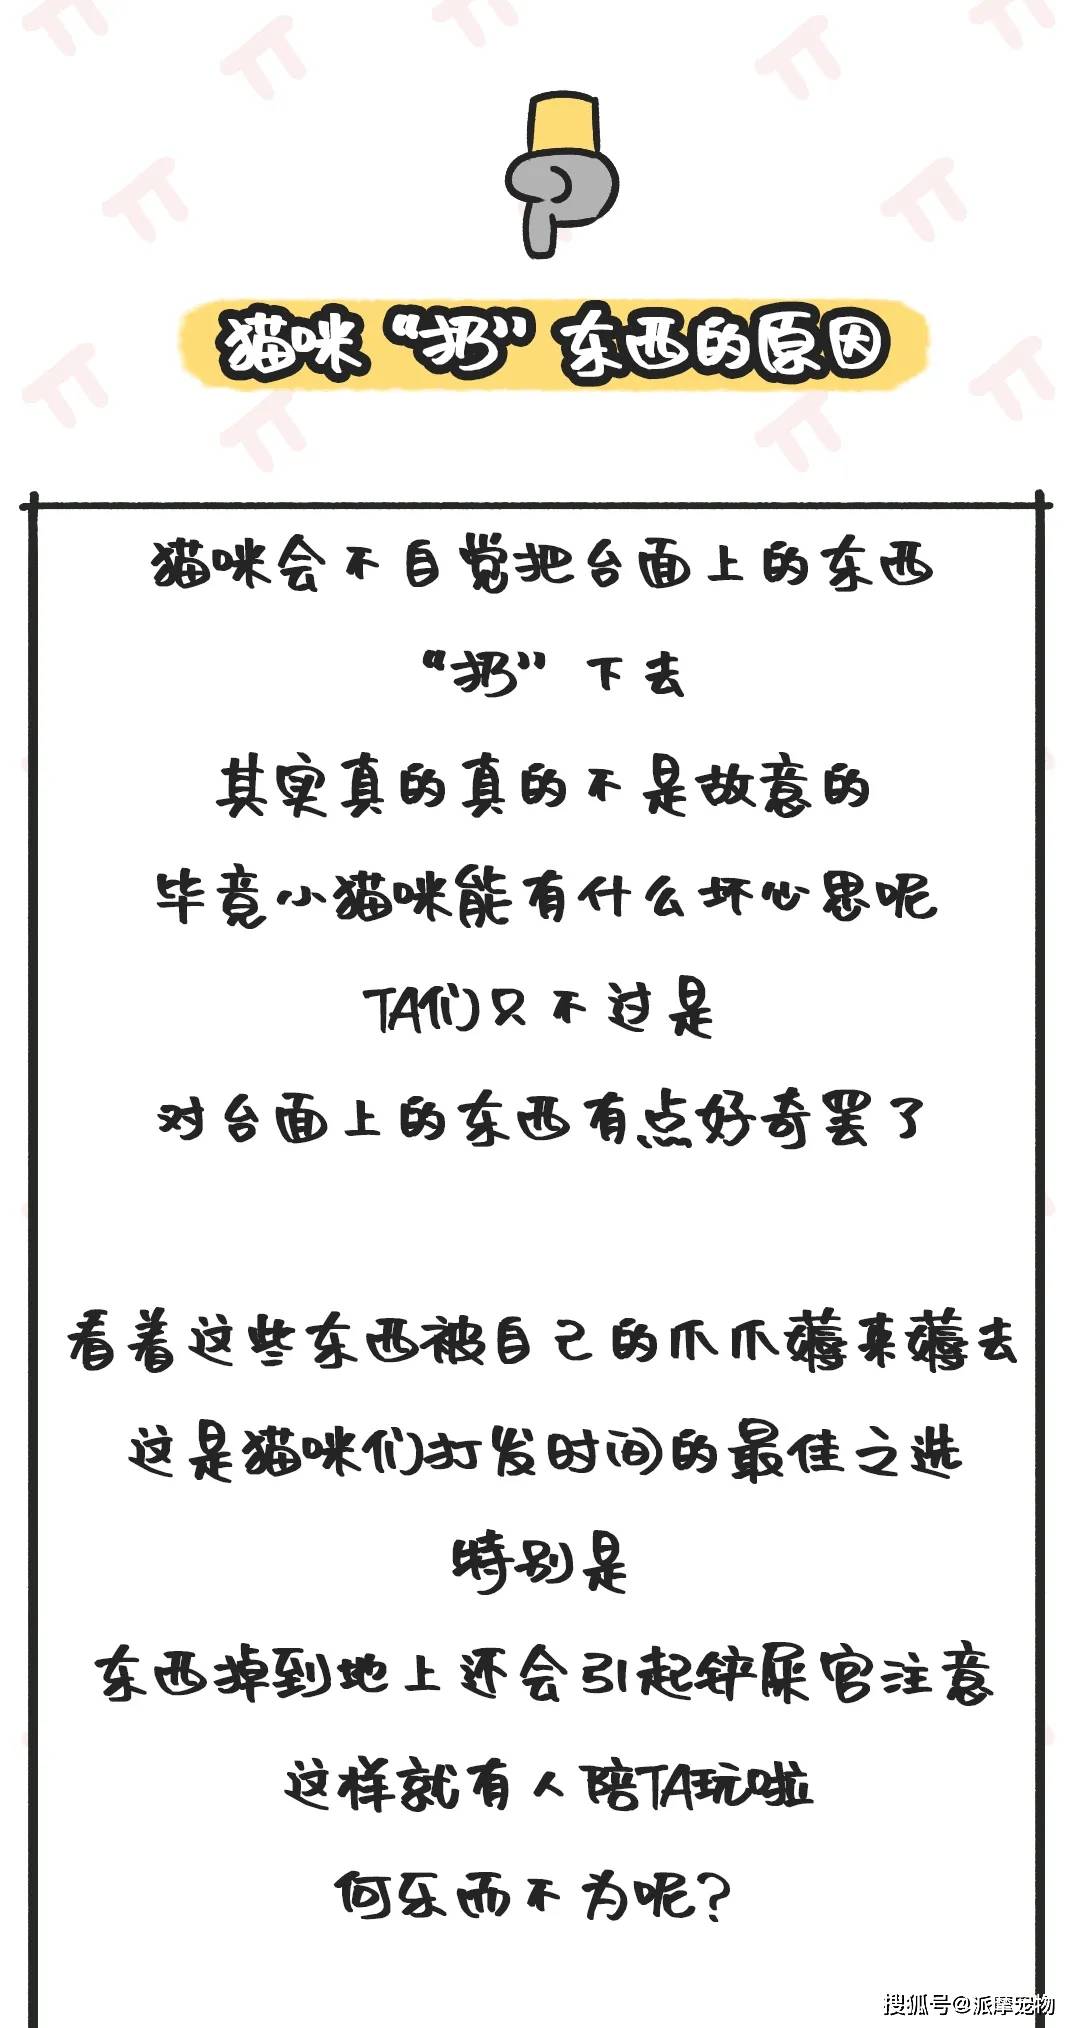 猫咪“扔”东西的原因
猫咪会不自觉把台面上的东西
“扔”下去
其实真的真的不是故意的
毕竟小猫咪能有什么坏心思呢
TA们只不过是
对台面上的东西有点好奇罢了
看着这些东西被自己的爪爪薅来薅去
这是猫咪们打发时间的最佳之选
特别是
东西掉到地上还会引起铲屎官注意
这样就有人陪TA玩啦
何乐而不为呢?
搜狐号@派摩宠物